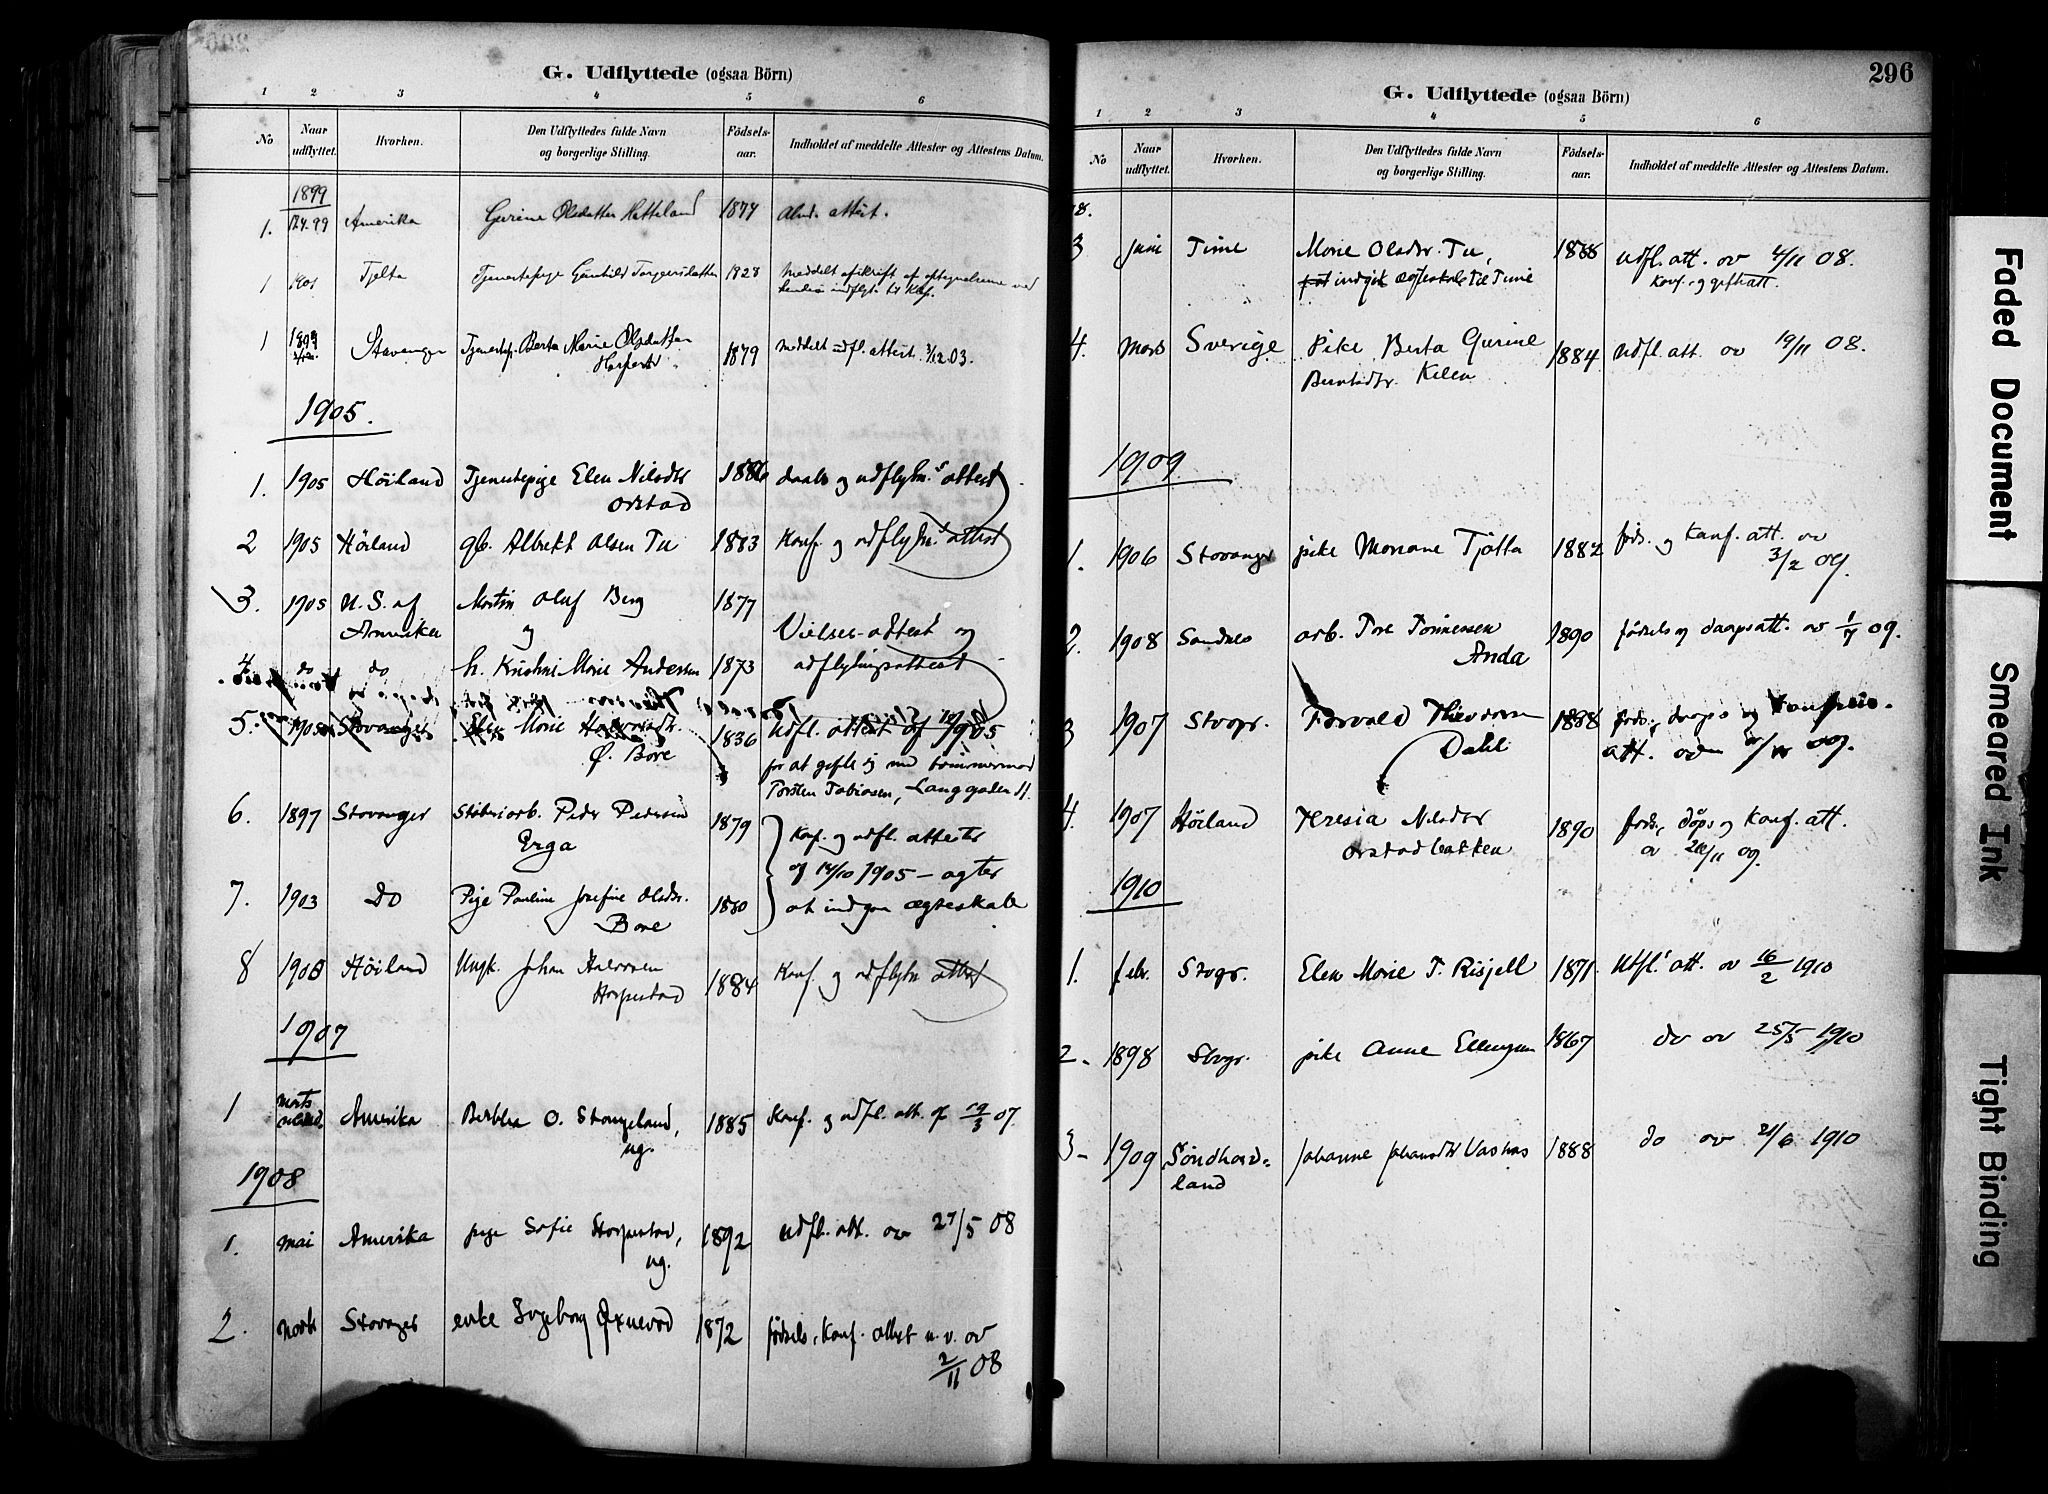 G. Udflyttede (ogsaa Börn)
1 2 3 4 5 6
No Naar udflyttet. Hvorhen. Den Udflyttedes fulde Navn og borgerlige Stilling. Födsels-aar. Indholdet af meddelte Attester og Attestens Datum.
1899
1. Amerika Gurine Olsdatter Hatteland 1877 attest.
1 1901 Tjelta Tjenestepige Gunhild Torgersdatter 1828 Meddelt afskrift af ved
1 1899 Stavanger Tjenestep. Berta Marie Olsdatter 1879 Meddelt udfl. attest. 3/12.03.
1905.
1. 1905 Höiland Tjenestepige Elen Nilsdtr 1886 daabs og udflytn.s attest
Orstad
2 1905 Höiland gb. Albrekt Olsen Tu 1883 Konf. og udflytn.s attest
3. 1905 U. S. af Martin Oluf Berg 1877
Amerika og Vielses-attest og
4 do do h. Kristine Marie Andersen 1873 udflytningsattest
5. 1905 Stavanger Elen Marie 1836 Udfl. attest af 1905
Ø. Bore for at gifte sig med tömmermand
Torsten Tobiasen, Langgaden 11.
6. 1897 Stavanger Peder Pedersen 1879 Konf. og udfl. attester
Erga af 14/10 1905 – agter
7. 1903 Do Pige Pauline Josefine Olsdtr. 1880 at indgaa ægteskab
Bore
8 1905 Höiland Ungk. Johan Halvorsen 1884 Konf. og udflytn. attest
Horpestad
1907
1 Amerika Berthea O. Stangeland, 1885 Konf. og udfl. att. af 19/3 07.
ug.
1908
1. mai Amerika pige Sofie Horpestad, 1892 udfl. att. av 27/5 08
ug.
2. Stavanger enke Ingeborg Øxnevad 1872 födsels, Konf. attest m. v. av
2/11 08
296
G. Udflyttede (ogsaa Börn)
1 2 3 4 5 6
No Naar udflyttet. Hvorhen. Den Udflyttedes fulde Navn og borgerlige Stilling. Födsels-aar. Indholdet af meddelte Attester og Attestens Datum.
08.
3 juni Time Marie Olsdtr. Tu, 1888 udfl. att. av 4/11 08.
indgik ægteskab til Time Konf. og giftatt.
4. Mars Sverige Pike Berta Gurine 1884 Udfl. att. av 19/11 08.
Berntsdtr. Kilen
1909
1. 1906 Stavanger pike Mariane Tjötta 1882 föds. og Konf. att. av
3/2 09.
2. 1908 Sandnes arb. Tore Tönnesen 1890 födsels og daapsatt. av 1/7 09.
Anda
3 1907 Stvgr. Torvald 1888 föds., daaps og
Dahl att. 09.
4. 1907 Höiland Teresia Nilsdtr 1890 föds., döps og Konf. att.
Orstadbakken av /11 09.
1910
1. febr. Stvgr. Elen Marie T. Risjell 1871 Utfl. att. av 16/2 1910
2- 1898 Stvgr. pike Anne Ellingsen 1867 do av 25/5 1910
3- 1909 Söndhord- Johanne Johansdtr Vasnes 1888 do av 21/6 1910
land
Faded Document
Smeared Ink
Tight Binding